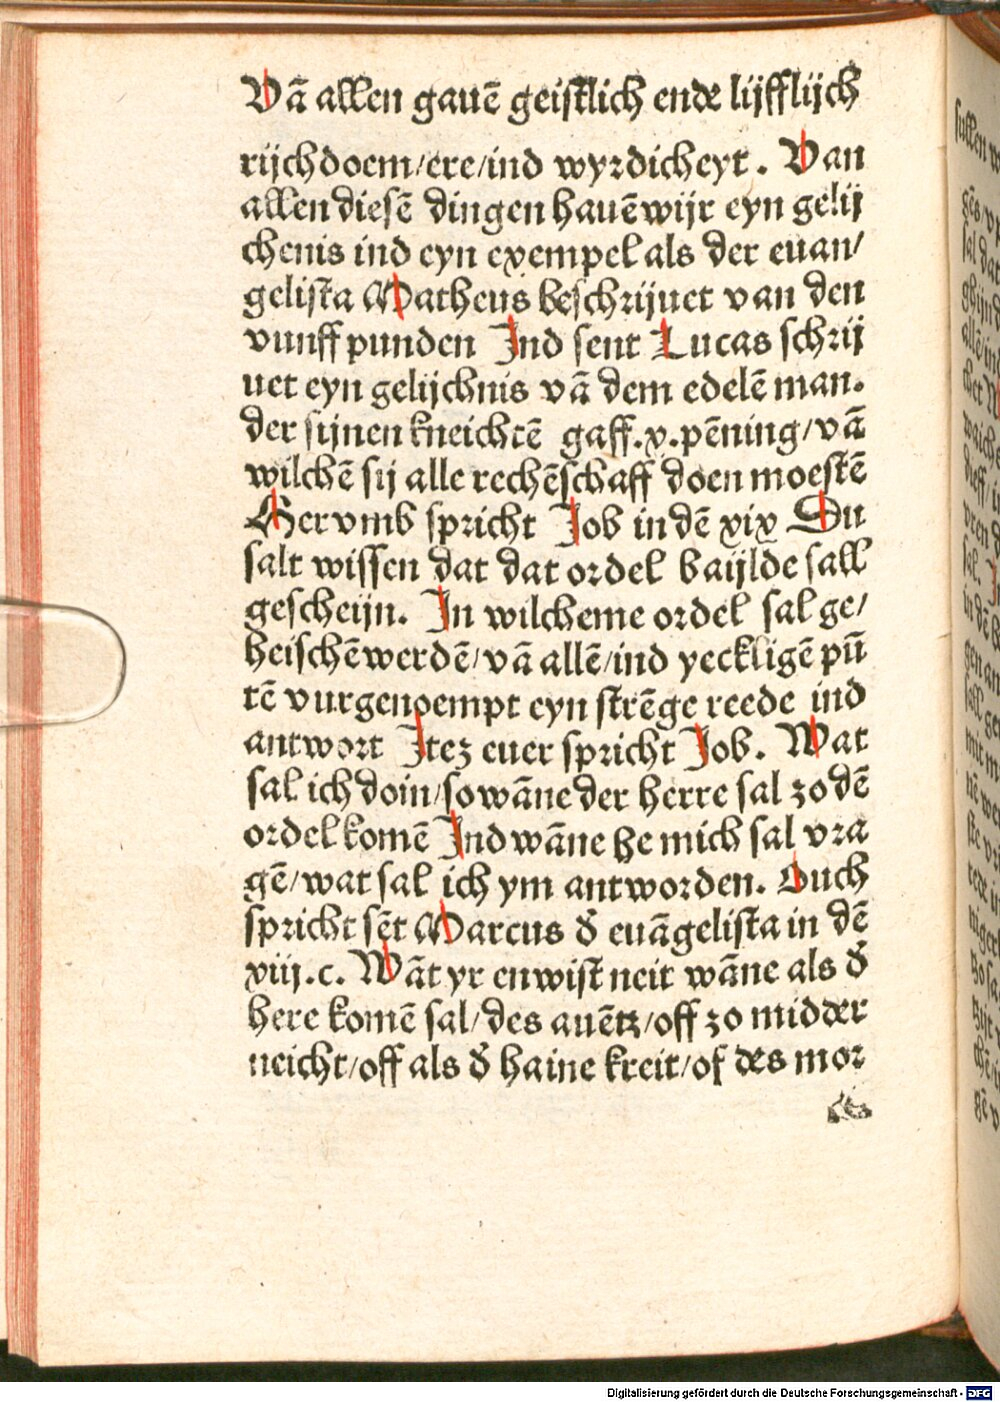 Vā allen gauē geistlich ende lijfflijch
rijchdoem/ere/ind wyrdicheyt. Van
allen diesē dingen hauē wijr eyn gelij
chenis ind eyn exempel als der euan/
gelista Matheus beschrijuet van den
vunff punden Ind sent Lucas schrij
uet eyn gelijchnis vā dem edelē man.
der sijnen kneichtē gaff.x.pēning/vā
wilchē sij alle rechēschaff doen moestē
Hervmb spricht Job in dē xix Du
salt wissen dat dat ordel baijlde sall
gescheijn. In wilcheme ordel sal ge/
heischē werdē/vā allē/ind yeckligē pū
tē vurgenoempt eyn strēge reede ind
antwort Itez euer spricht Job. Wat
sal ich doin/so wāne der herre sal zo dē
ordel komē Ind wāne he mich sal vra
gē/wat sal ich ym antworden. Ouch
spricht sēt Marcus d̄ euāgelista in dē
xiij.c. Wāt yr en wist neit wāne als d̄
here komē sal/des auētz/off zo midder
neicht/off als d̄ haine kreit/of des mor
Digitalisierung gefördert durch die Deutsche Forschungsgemeinschaft - DFG